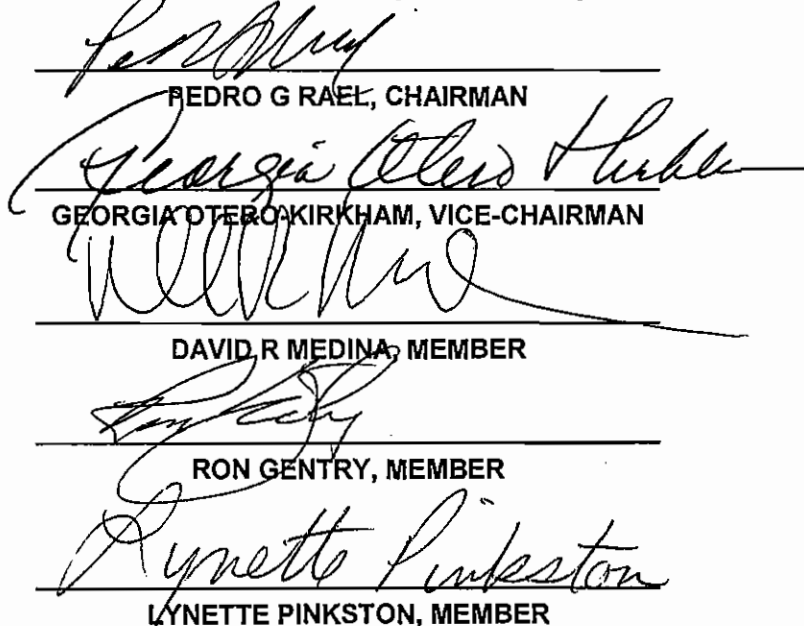 PEDRO G RAEL, CHAIRMAN
Georgia Otero Kirkham
GEORGIA OTERO-KIRKHAM, VICE-CHAIRMAN
DAVID R MEDINA, MEMBER
RON GENTRY, MEMBER
Lynette Pinkston
LYNETTE PINKSTON, MEMBER